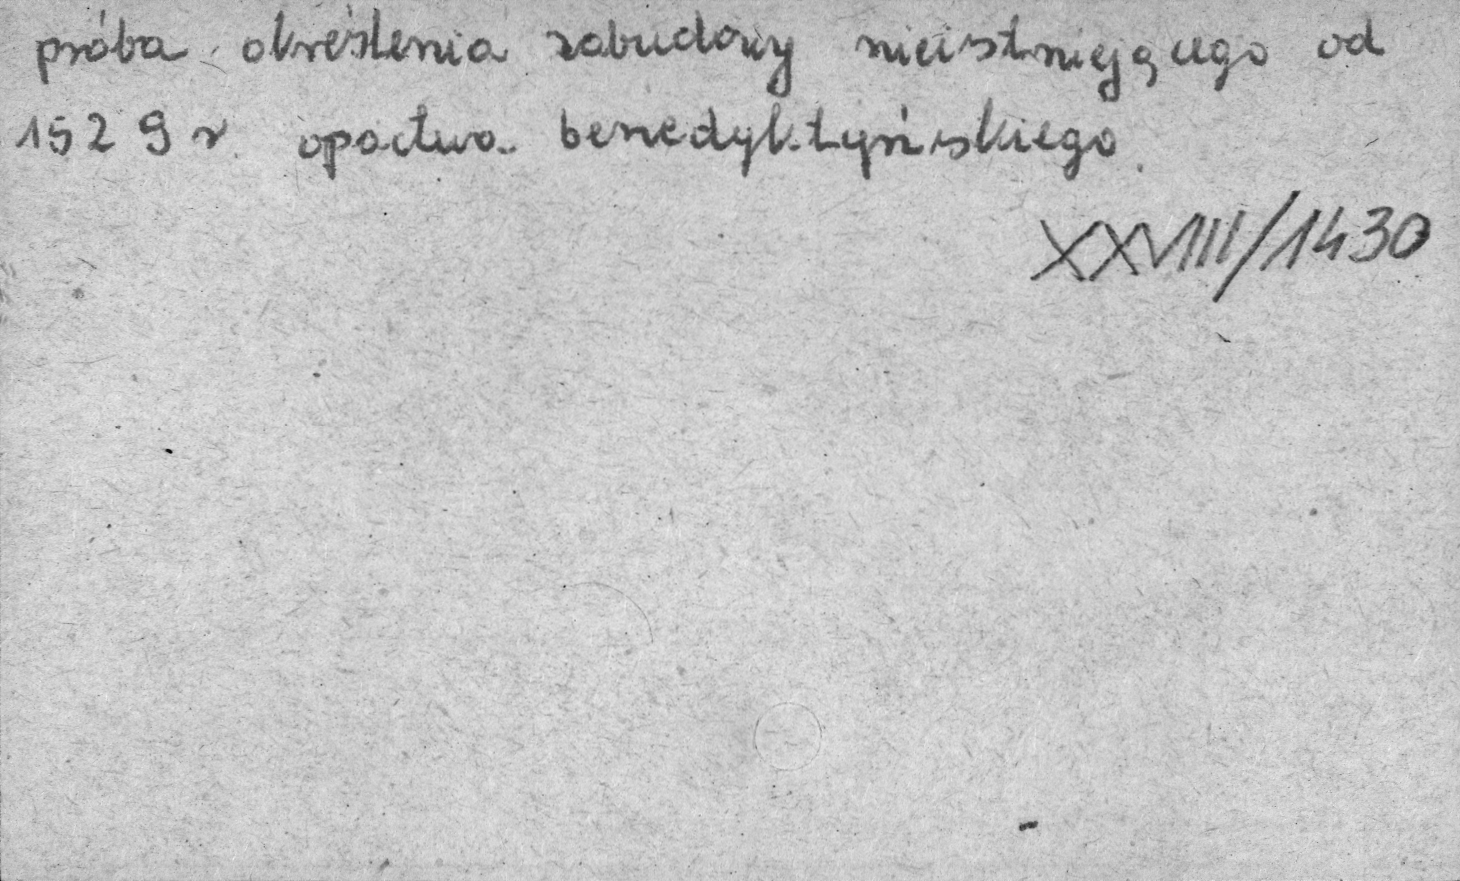 próba określenia zabudowy nieistniejącego od
1529 r. opactwa benedyktyńskiego.
XXVIII/1430